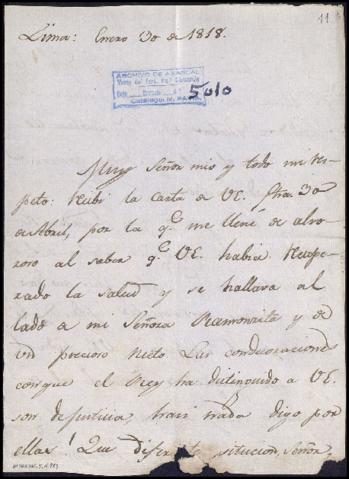 11
Lima: Enero 30 de 1818.
ARCHIVO DE ABASCAL
5010
Muy Señor mio y todo mi res-
peto: recibi la carta de VE. fha 30
de Abril, por la q.e me llené de albo-
rozo al saber q.e VE. habia recupe-
rado la salud y se hallava al
lado de mi Señora Ramonsita y de
un precioso Nieto Las condecoraciones
con que el Rey ha distinguido a VE.
son de justicia, nada digo por
ellas! Que diferente situcion, Señor,